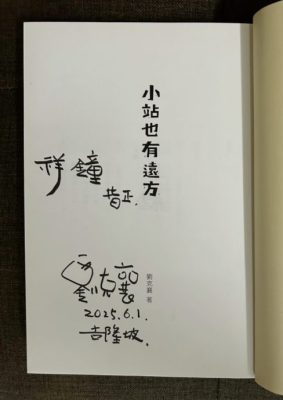 小站也有遠方
劉克襄 著
祥鐘
指正.
劉克襄
2025.6.1.
吉隆坡.